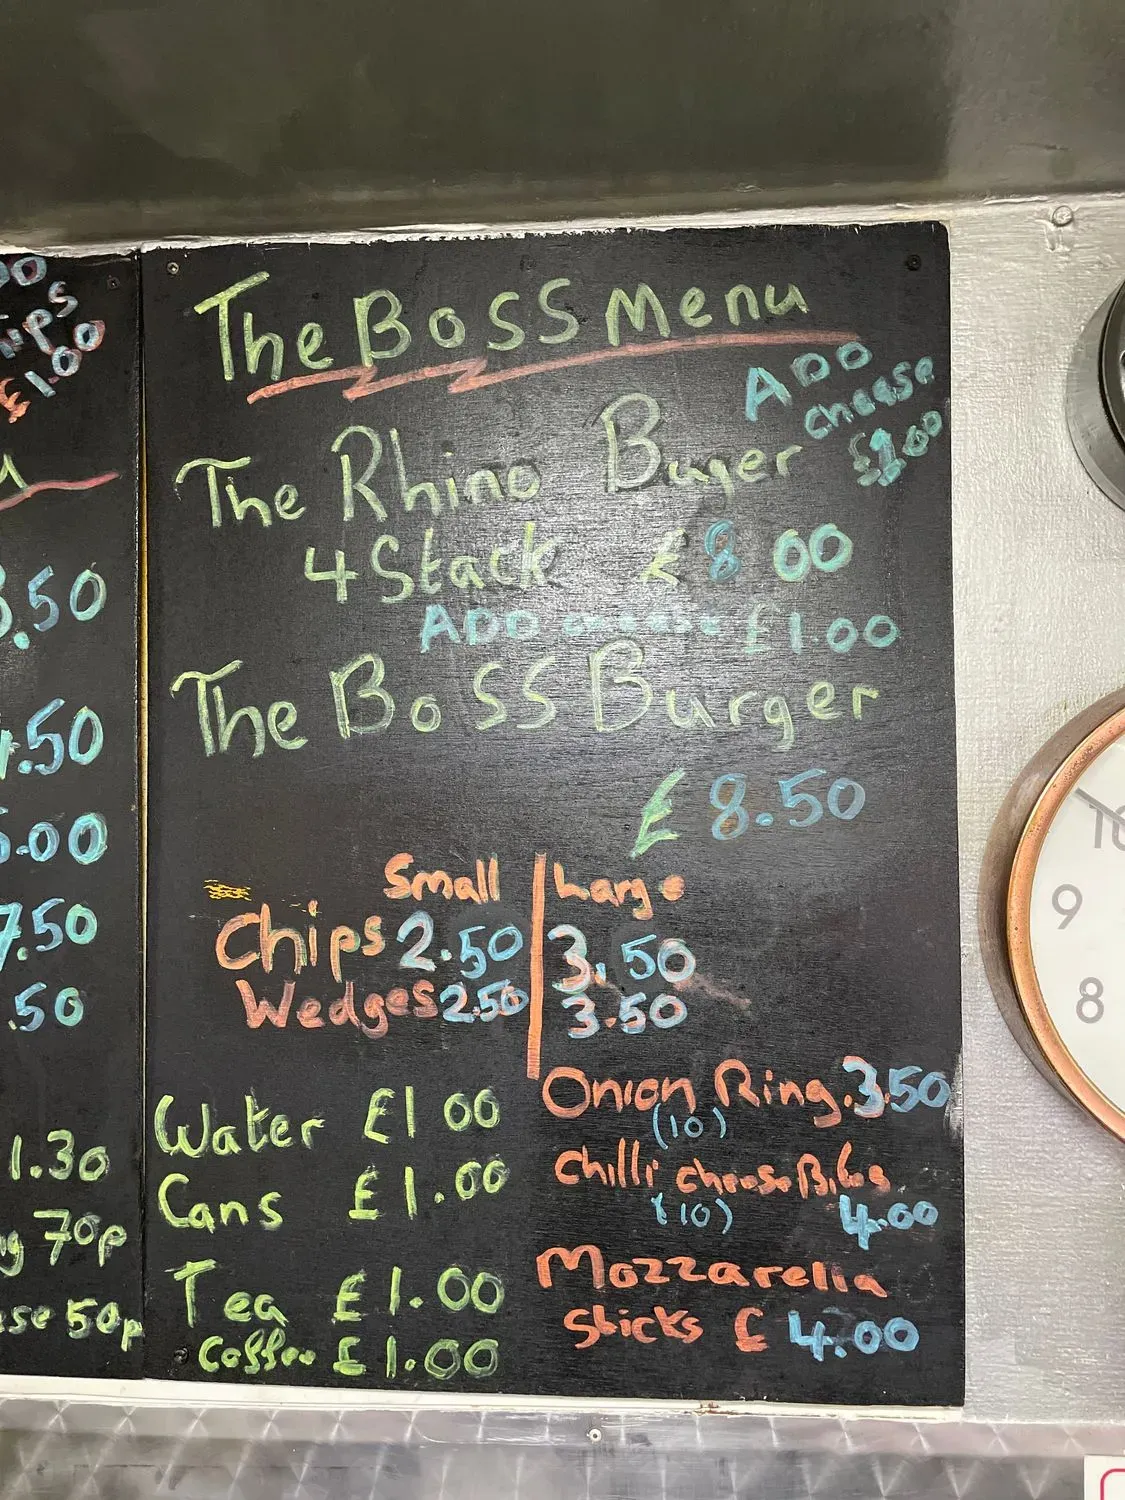 00
£1.00
3.50
4.50
5.00
7.50
.50
1.30
70p
50p
The Boss Menu
ADD
cheese
£1.00
The Rhino Burger
4 Stack £8 00
ADD cheese £1.00
The Boss Burger
£8.50
Small Large
Chips 2.50 3.50
Wedges 2.50 3.50
Water £1 00
Cans £1.00
Tea £1.00
Coffee £1.00
Onion Ring.3.50
(10)
Chilli cheese Bites
(10) 4.00
Mozzarella
Sticks £4.00
10
9
8